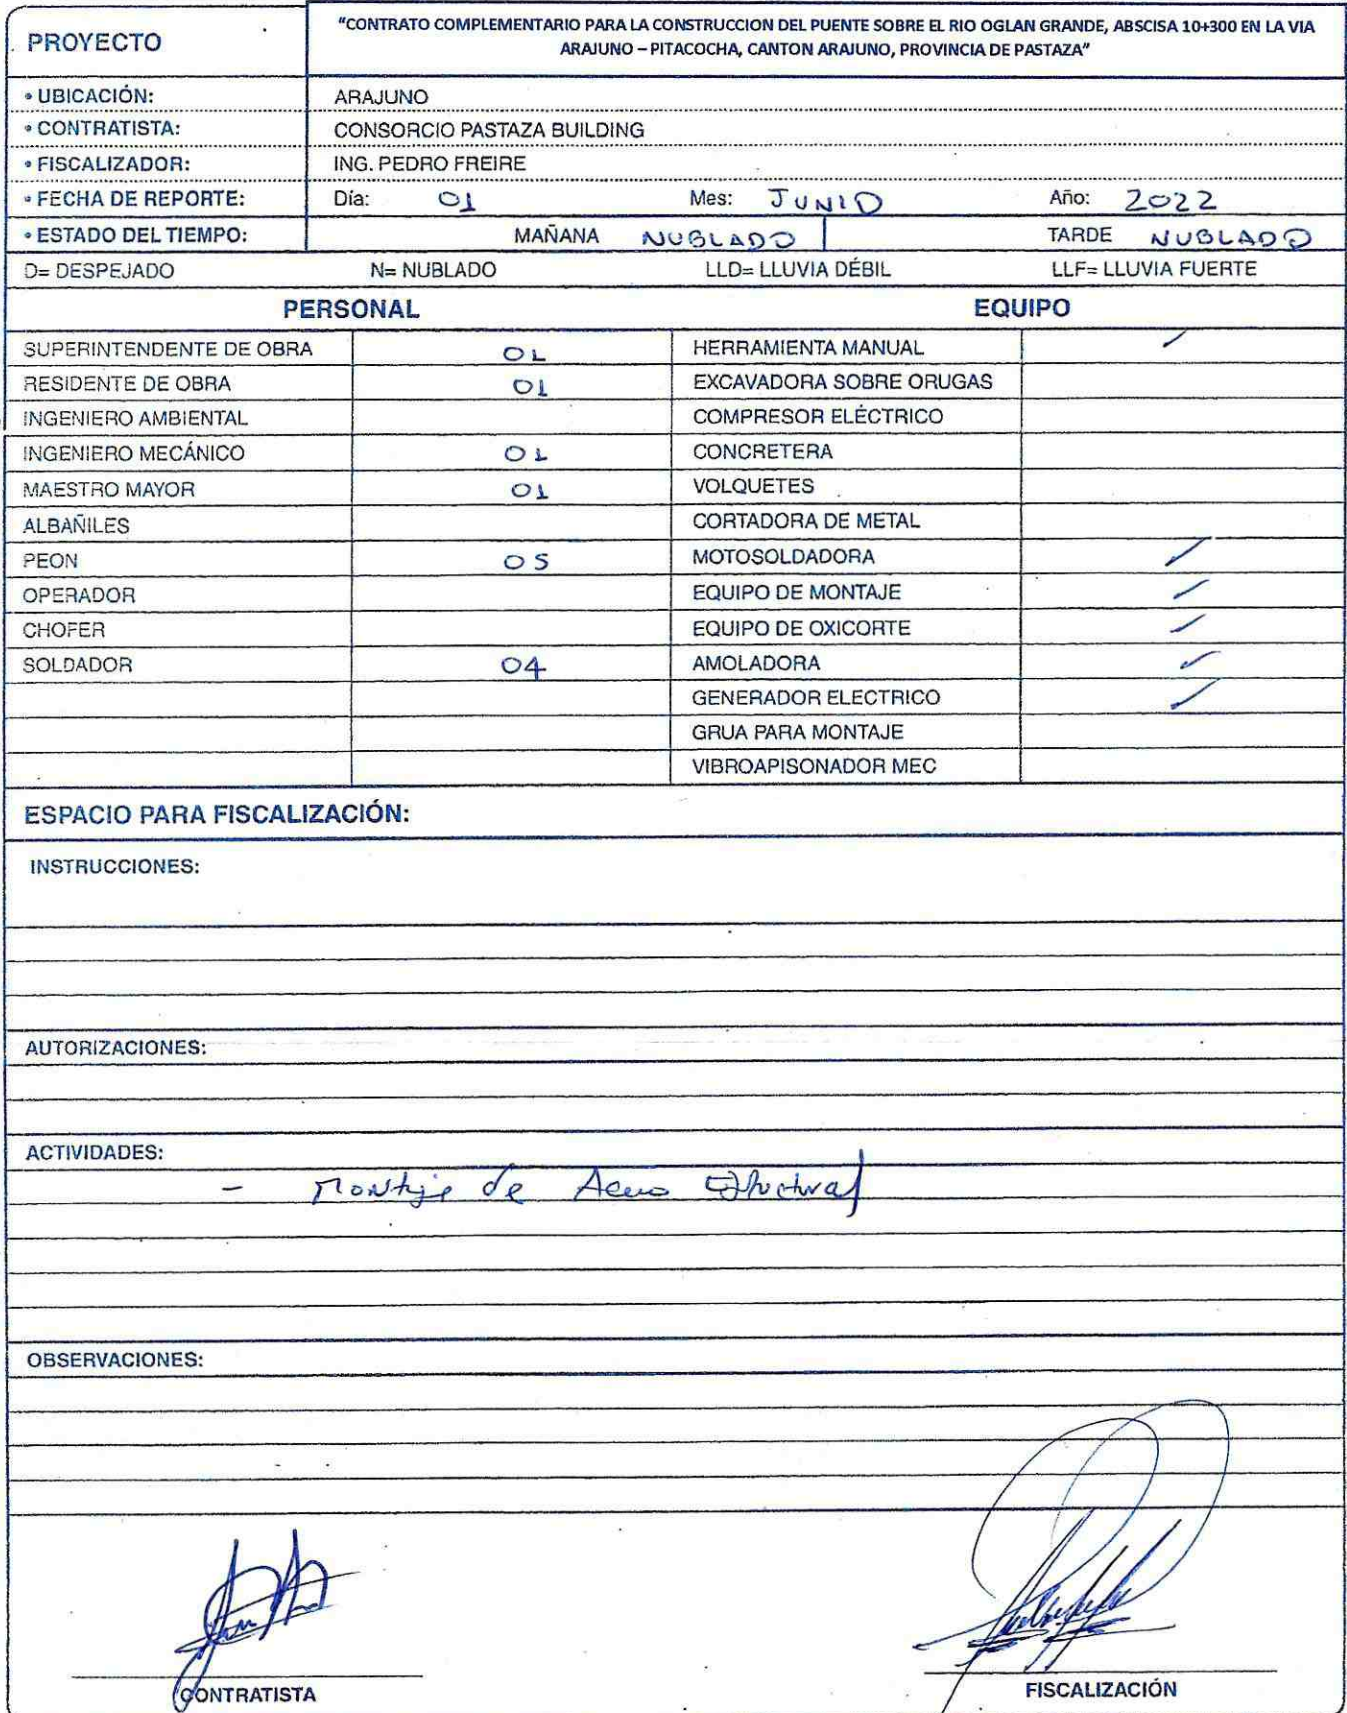 PROYECTO
"CONTRATO COMPLEMENTARIO PARA LA CONSTRUCCION DEL PUENTE SOBRE EL RIO OGLAN GRANDE, ABSCISA 10+300 EN LA VIA
ARAJUNO – PITACOCHA, CANTON ARAJUNO, PROVINCIA DE PASTAZA"
• UBICACIÓN: ARAJUNO
• CONTRATISTA: CONSORCIO PASTAZA BUILDING
• FISCALIZADOR: ING. PEDRO FREIRE
• FECHA DE REPORTE: Día: 01 Mes: JUNIO Año: 2022
• ESTADO DEL TIEMPO: MAÑANA NUBLADO TARDE NUBLADO
D= DESPEJADO N= NUBLADO LLD= LLUVIA DÉBIL LLF= LLUVIA FUERTE
PERSONAL EQUIPO
SUPERINTENDENTE DE OBRA 01 HERRAMIENTA MANUAL ✓
RESIDENTE DE OBRA 01 EXCAVADORA SOBRE ORUGAS
INGENIERO AMBIENTAL COMPRESOR ELÉCTRICO
INGENIERO MECÁNICO 01 CONCRETERA
MAESTRO MAYOR 01 VOLQUETES
ALBAÑILES CORTADORA DE METAL
PEON 05 MOTOSOLDADORA ✓
OPERADOR EQUIPO DE MONTAJE ✓
CHOFER EQUIPO DE OXICORTE ✓
SOLDADOR 04 AMOLADORA ✓
GENERADOR ELECTRICO ✓
GRUA PARA MONTAJE
VIBROAPISONADOR MEC
ESPACIO PARA FISCALIZACIÓN:
INSTRUCCIONES:
AUTORIZACIONES:
ACTIVIDADES:
- Montaje de Acero Estructural
OBSERVACIONES:
CONTRATISTA FISCALIZACIÓN